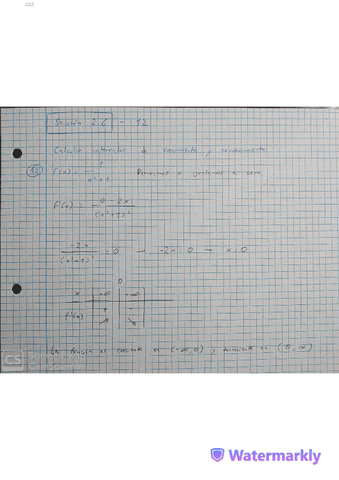 Sección 2.6 - 12
Calcular intervalos de crecimiento y decrecimiento
12 f(x) = 1 / x²+1 Derivamos e igualamos a cero
f'(x) = 0 - 2x / (x²+1)²
-2x / (x²+1)² = 0 → -2x = 0 → x = 0
0
x | -∞ | +∞
f'(x) | + | -
↗ ↘
La función es creciente en (-∞, 0) y decreciente en
CS
Watermarkly